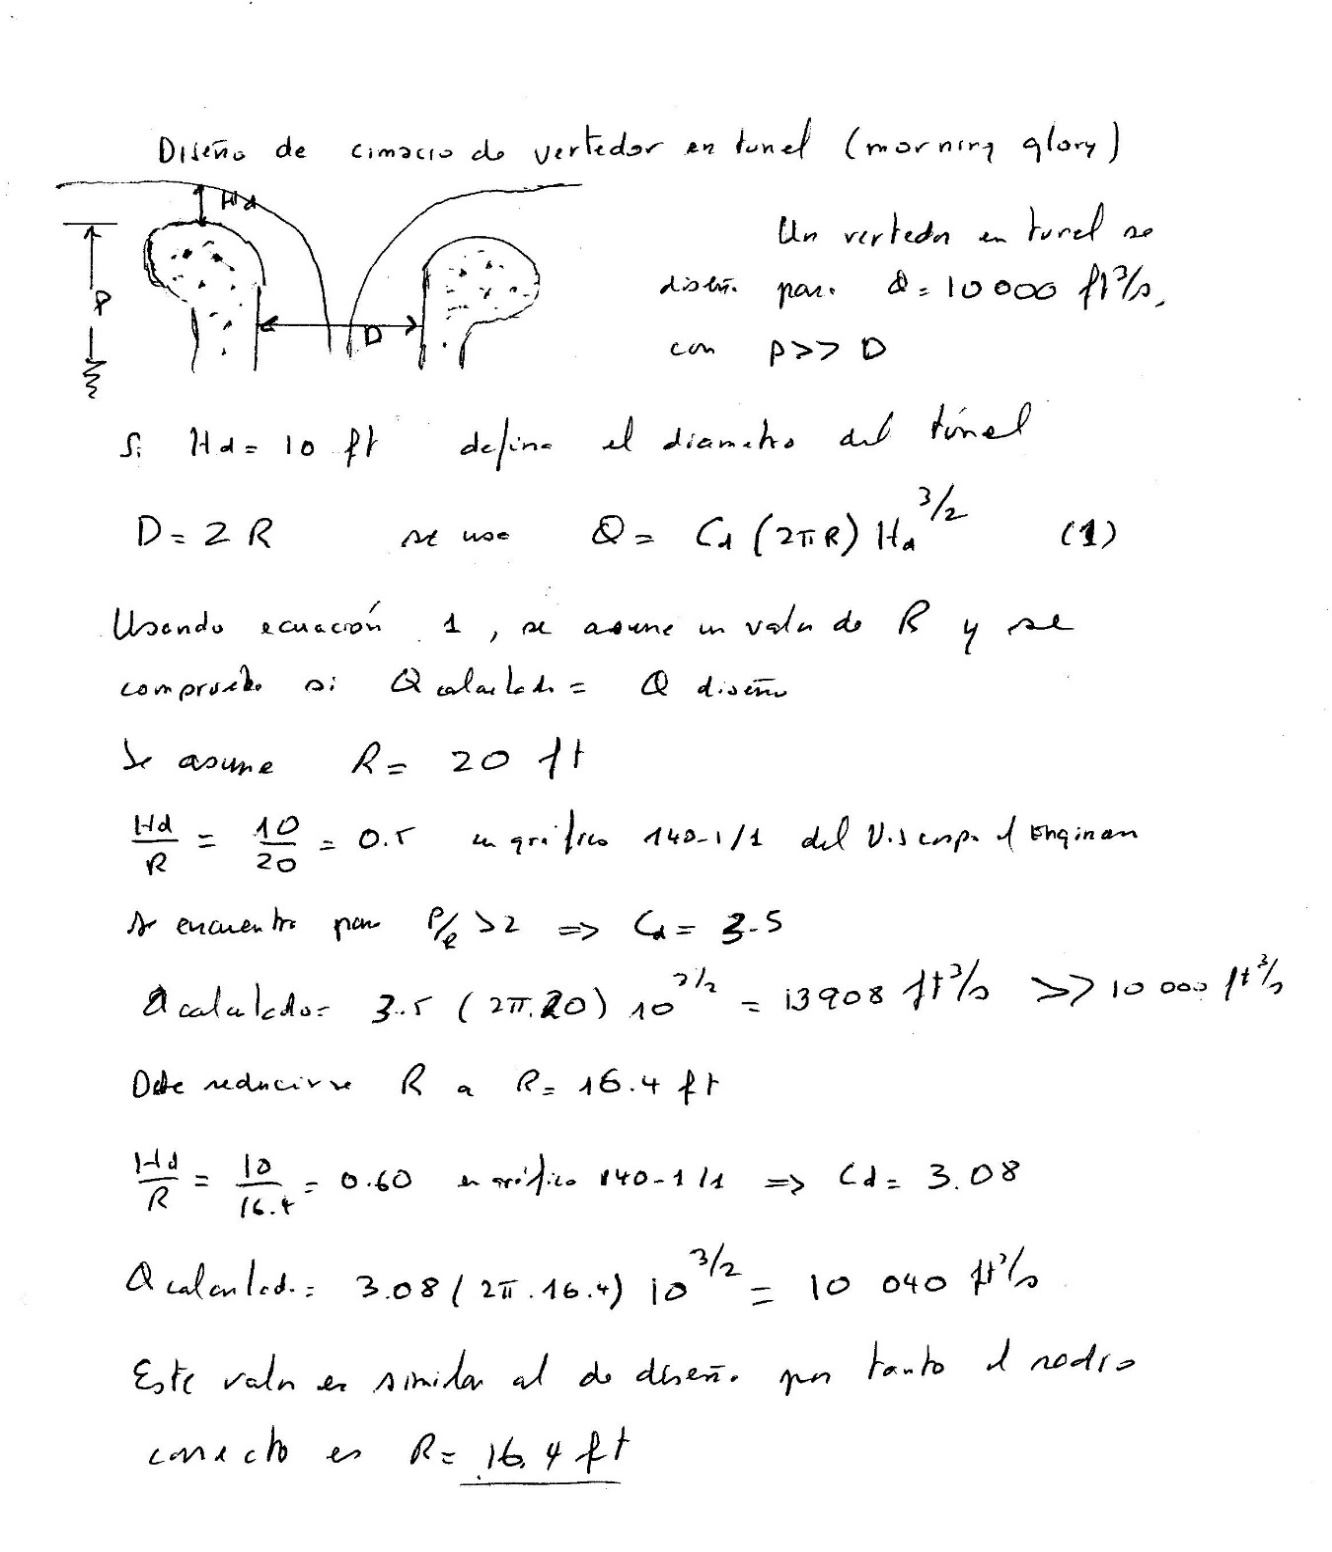 Diseño de cimacio de vertedor en tunel (morning glory)
Hd
P
D
Un vertedor en tunel se
diseña para Q = 10000 ft³/s,
con P>> D
Si Hd = 10 ft define el diametro del túnel
D = 2 R se usa Q = Cd (2πR) Hd^3/2 (1)
Usando ecuación 1, se asume un valor de R y se
comprueba si Q calculado = Q diseño
Se asume R = 20 ft
Hd/R = 10/20 = 0.5 en gráfico 140-1/1 del U.S corps of Engineers
se encuentra para P/R >2 => Cd = 3.5
Q calculado = 3.5 (2π.20) 10^3/2 = 13908 ft³/s >> 10 000 ft³/s
Debe reducirse R a R = 16.4 ft
Hd/R = 10/16.4 = 0.60 en gráfico 140-1/1 => Cd = 3.08
Q calculado = 3.08 (2π.16.4) 10^3/2 = 10 040 ft³/s
Este valor es similar al de diseño por tanto el radio
correcto es R = 16.4 ft